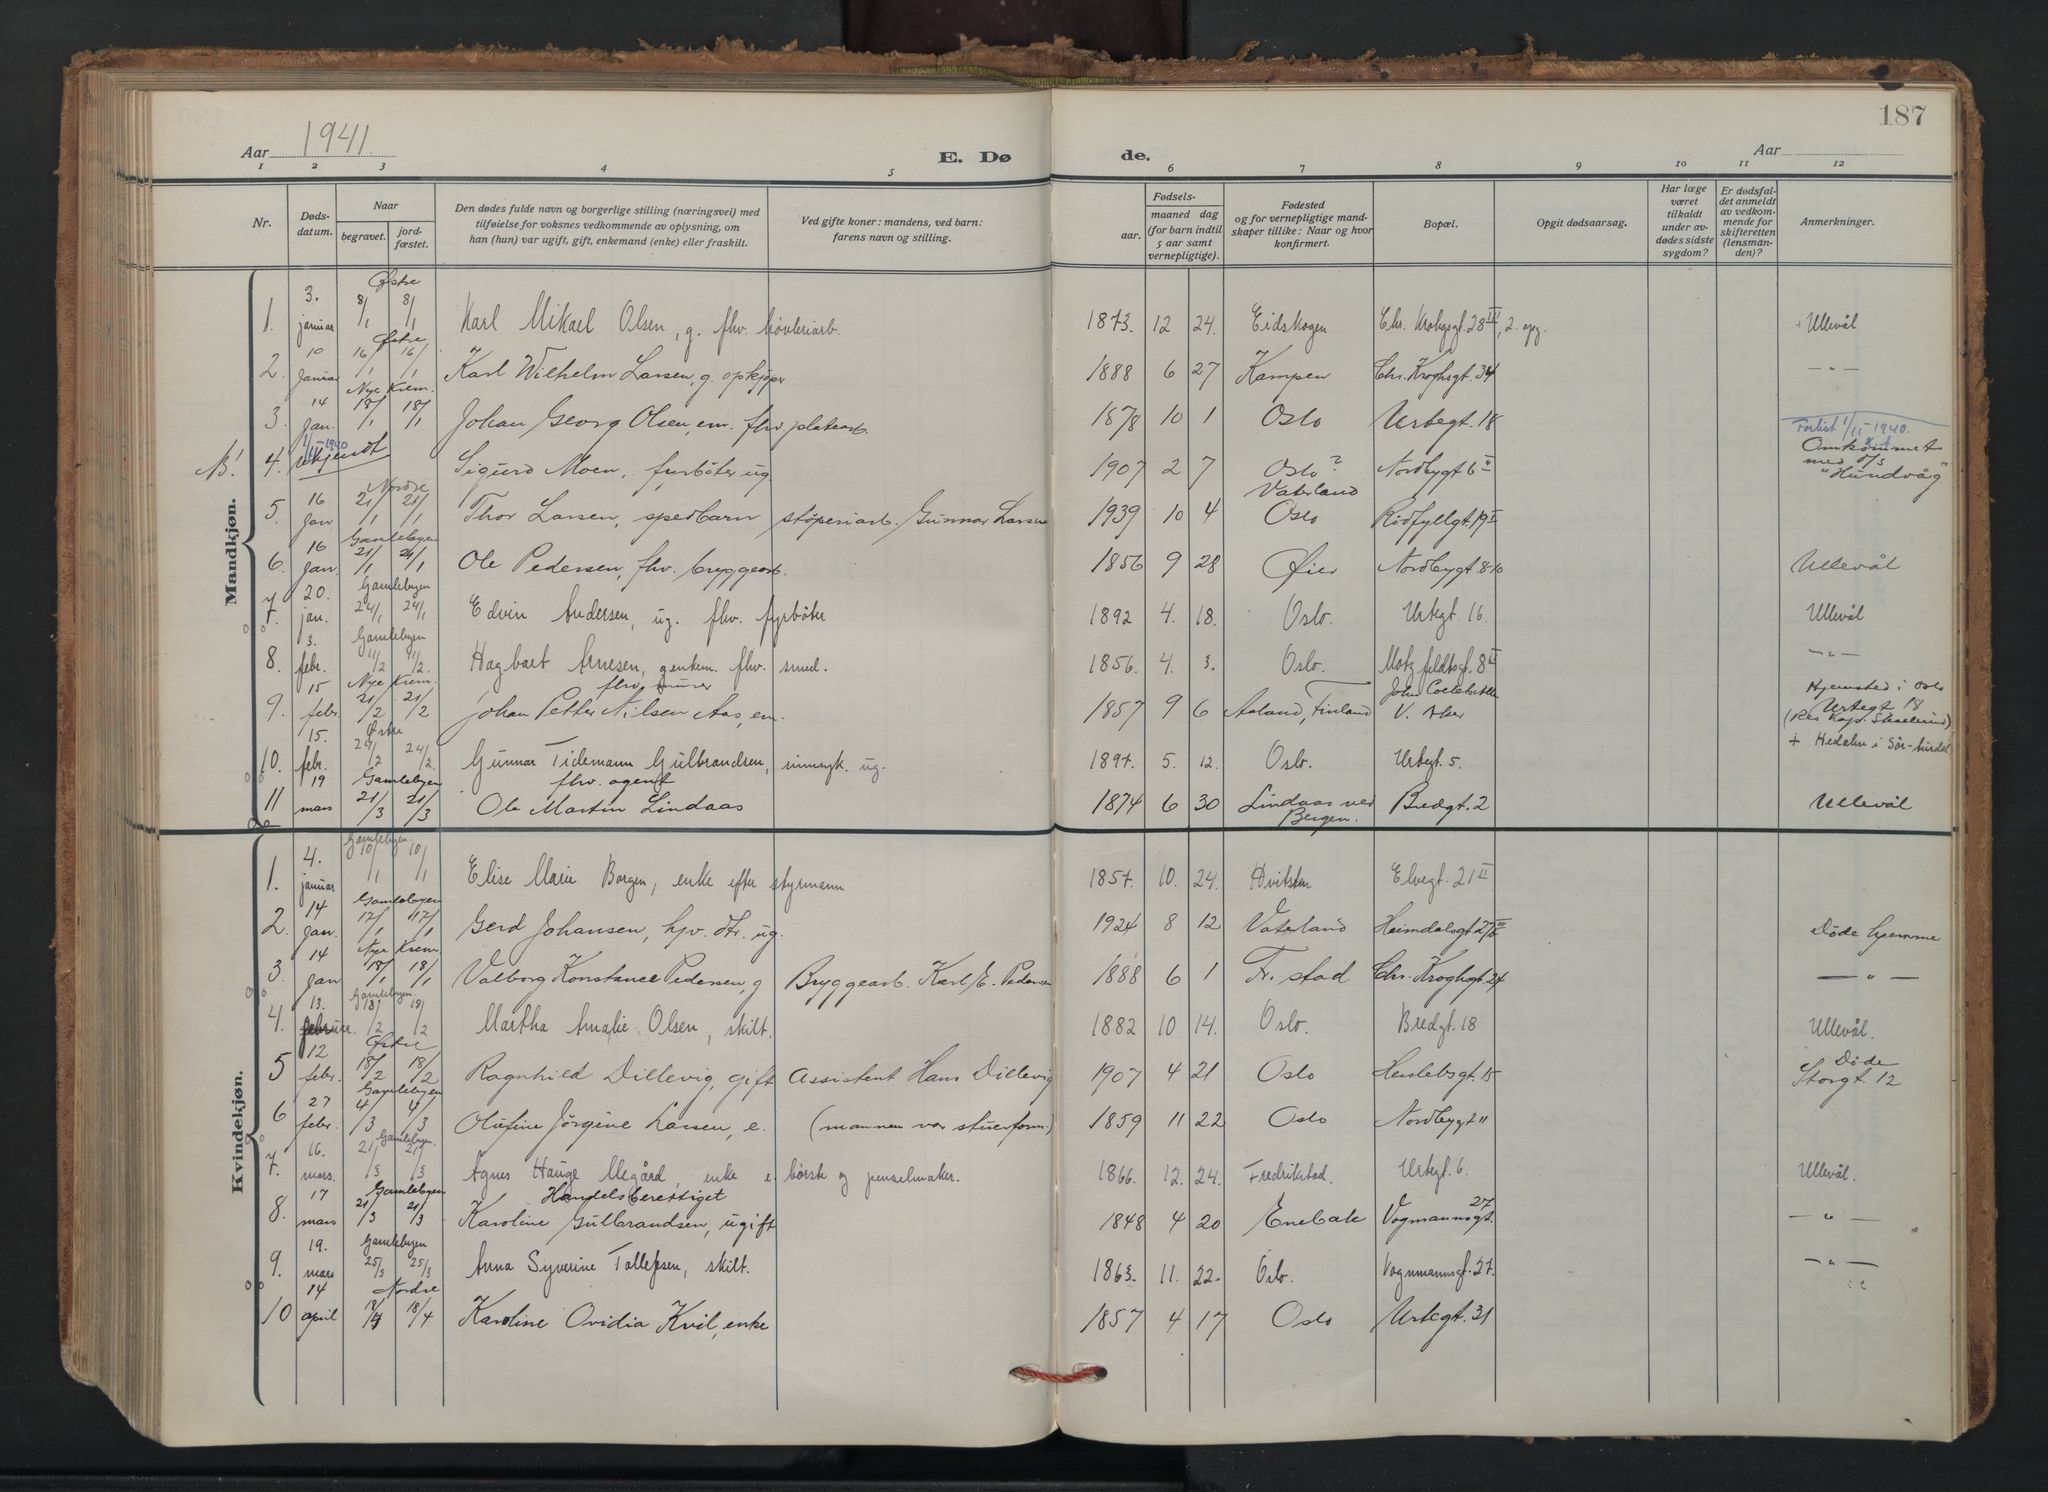 187
Aar 1941.
E. Dø
de.
Aar
1 2 3 4 5 6 7 8 9 10 11 12
Nr.
Døds-
datum.
Naar
begravet.
jord-
fæstet.
Den dødes fulde navn og borgerlige stilling (næringsvei) med
tilføielse for voksnes vedkommende av oplysning, om
han (hun) var ugift, gift, enkemand (enke) eller fraskilt.
Ved gifte koner: mandens, ved barn:
farens navn og stilling.
Fødsels-
aar.
maaned dag
(for barn indtil
5 aar samt
vernepligtige).
Fødested
og for vernepligtige mand-
skaper tillike: Naar og hvor
konfirmert.
Bopæl.
Opgit dødsaarsag.
Har læge
været
tilkaldt
under av-
dødes sidste
sygdom?
Er dødsfal-
det anmeldt
av vedkom-
mende for
skifteretten
(lensman-
den)?
Anmerkninger.
Mandkjøn.
Østre
1. 3. januar 8/1 8/1 Karl Mikael Olsen, g. fhv. høvleriarb. 1873. 12 24. Eidskogen Chr. Krohgsgt. 28 III, 2. opg. + Ullevål
Østre
2. 10 Januar 16/1 16/1 Karl Wilhelm Larsen, g. opkjøper 1888 6 27 Kampen Chr. Kroghsgt. 34 — " —
Nye Krem.
3. 14 Jan. 18/1 18/1 Johan Georg Olsen, em. fhv. platearb. 1878 10 1 Oslo Urtegt. 18
Forlist 1/11-1940.
4. 1/11-1940 Ukjendt Sigurd Moen, fyrbøter ug. 1907 2 7 Oslo? Nordbygt 6 II Omkommet
med D/S
"Hundvåg"
Nordre
Vaterland
5. 16 Jan 21/1 21/1 Thor Larsen, spedbarn støperiarb. Gunnar Larsen 1939 10 4 Oslo Rødfyllgt. 19 I
Gamlebyen
6. 16 Jan. 21/1 21/1 Ole Pedersen, fhv. bryggearb. 1856 9 28 Øier Nordbygt 8-10 Ullevål
Gamlebyen
7. 20. jan. 24/1 24/1 Edvin Andersen, ug. fhv. fyrbøter 1892 4. 18. Oslo. Urtegt. 16. Ullevål
Gamlebyen
8. 3. febr. 11/2 11/2. Hagbart Arnesen, enkem. fhv. smed. 1856. 4. 3. Oslo. Motzfeldtsgt. 8 II — " —
Nye Krem.
fhv. murer
John Colletts Allé
Hjemsted i Oslo
9. 15 febr. 21/2 21/2 Johan Petter Nilsen Aas, em. 1857 9 6 Aaland, Finland V. Aker Urtegt 18
Østre
10. 15. febr. 24/2 24/2. Gunnar Tidemann Gulbrandsen, sinnsyk. ug. 1897. 5. 12. Oslo. Urtegt. 5. + Hedalen i Sør-Aurdal
Gamlebyen
fhv. agent
11 19 mars 21/3 21/3 Ole Martin Lindaas 1874 6 30 Lindaas ved Bredgt. 2 Ullevål
Bergen.
Kvindekjøn.
Gamlebyen
1. 4. januar 10/1 10/1 Elise Marie Borgen, enke efter styrmann 1857. 10. 24. Hvitsten Elvegt. 21 II
Gamlebyen
2. 14 Jan. 17/1 17/1 Gerd Johansen, hjv. dtr. ug. 1924 8 12 Vaterland Heimdalsgt 27 III Døde hjemme
Nye Krem
3. 14 Jan 18/1 18/1 Valborg Konstance Pedersen, g Bryggearb. Karl E. Pedersen 1888 6 1 Fr. stad Chr. Kroghsgt. 24 — " —
Gamlebyen
4. 13. februar. 18/2 18/2 Martha Amalie Olsen, skilt. 1882 10 14. Oslo. Bredgt. 18 Ullevål.
Østre
Døde
5 12 febr. 18/2 18/2 Ragnhild Dillevig, gift Assistent Hans Dillevig 1907 4 21 Oslo Herslebsgt. 15 Storgt. 12
Gamlebyen
6 27 febr. 4/3 4/3 Olufine Jørgine Larsen, e. (mannen var stuerform.) 1859 11 22 Oslo Nordbygt 11
Gamlebyen.
7. 16. mars. 21/3 21/3 Agnes Hauge Megård, enke e. børste og penselmaker. 1866. 12. 24. Fredrikstad. Urtegt. 6. Ullevål.
Gamlebyen
Handelsberettiget
8. 17 mars 21/3 21/3 Karoline Gulbrandsen, ugift 1848 4 20 Enebak Vognmannsgt. 27 — " —
Gamlebyen
9. 19. mars 25/3 25/3 Anna Syverine Tollefsen, skilt. 1863. 11. 22. Oslo. Vognmannsgt. 27. — " —
Nordre
10 14 april 18/4 18/4 Karoline Ovidia Kvil, enke 1857 4 17 Oslo Urtegt. 31